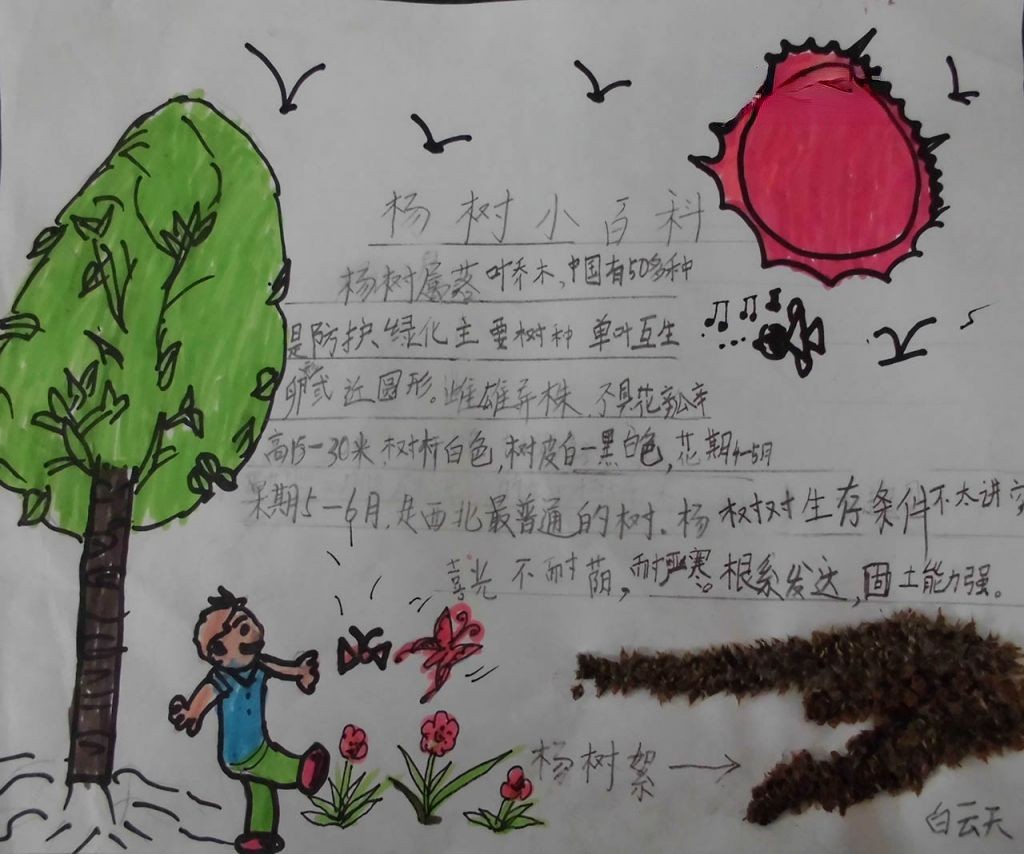 杨树小百科
杨树属落叶乔木,中国有50多种
是防护绿化主要树种 单叶互生
卵或近圆形。雌雄异株 不具花
高15-30米 树 白色,树皮白-黑白色,花期4-5月
果期5-6月,是西北最普通的树.杨树树生存条件不太讲究
喜光 不耐荫,耐严寒 根系发达,固土能力强。
杨树絮
白云天